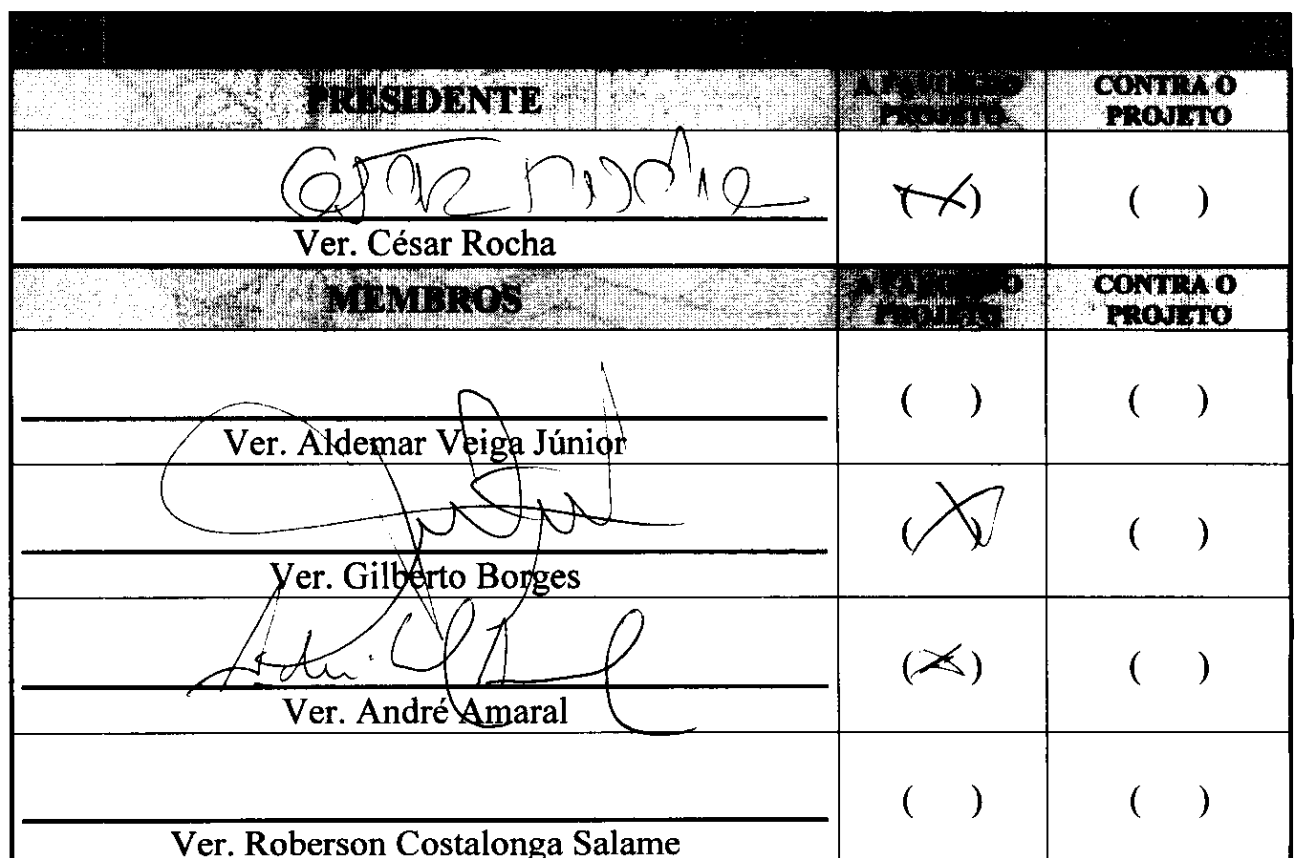 PRESIDENTE
A FAVOR DO PROJETO
CONTRA O PROJETO
César Rocha
( X )
( )
Ver. César Rocha
MEMBROS
A FAVOR DO PROJETO
CONTRA O PROJETO
( )
( )
Ver. Aldemar Veiga Júnior
( X )
( )
Ver. Gilberto Borges
( X )
( )
Ver. André Amaral
( )
( )
Ver. Roberson Costalonga Salame